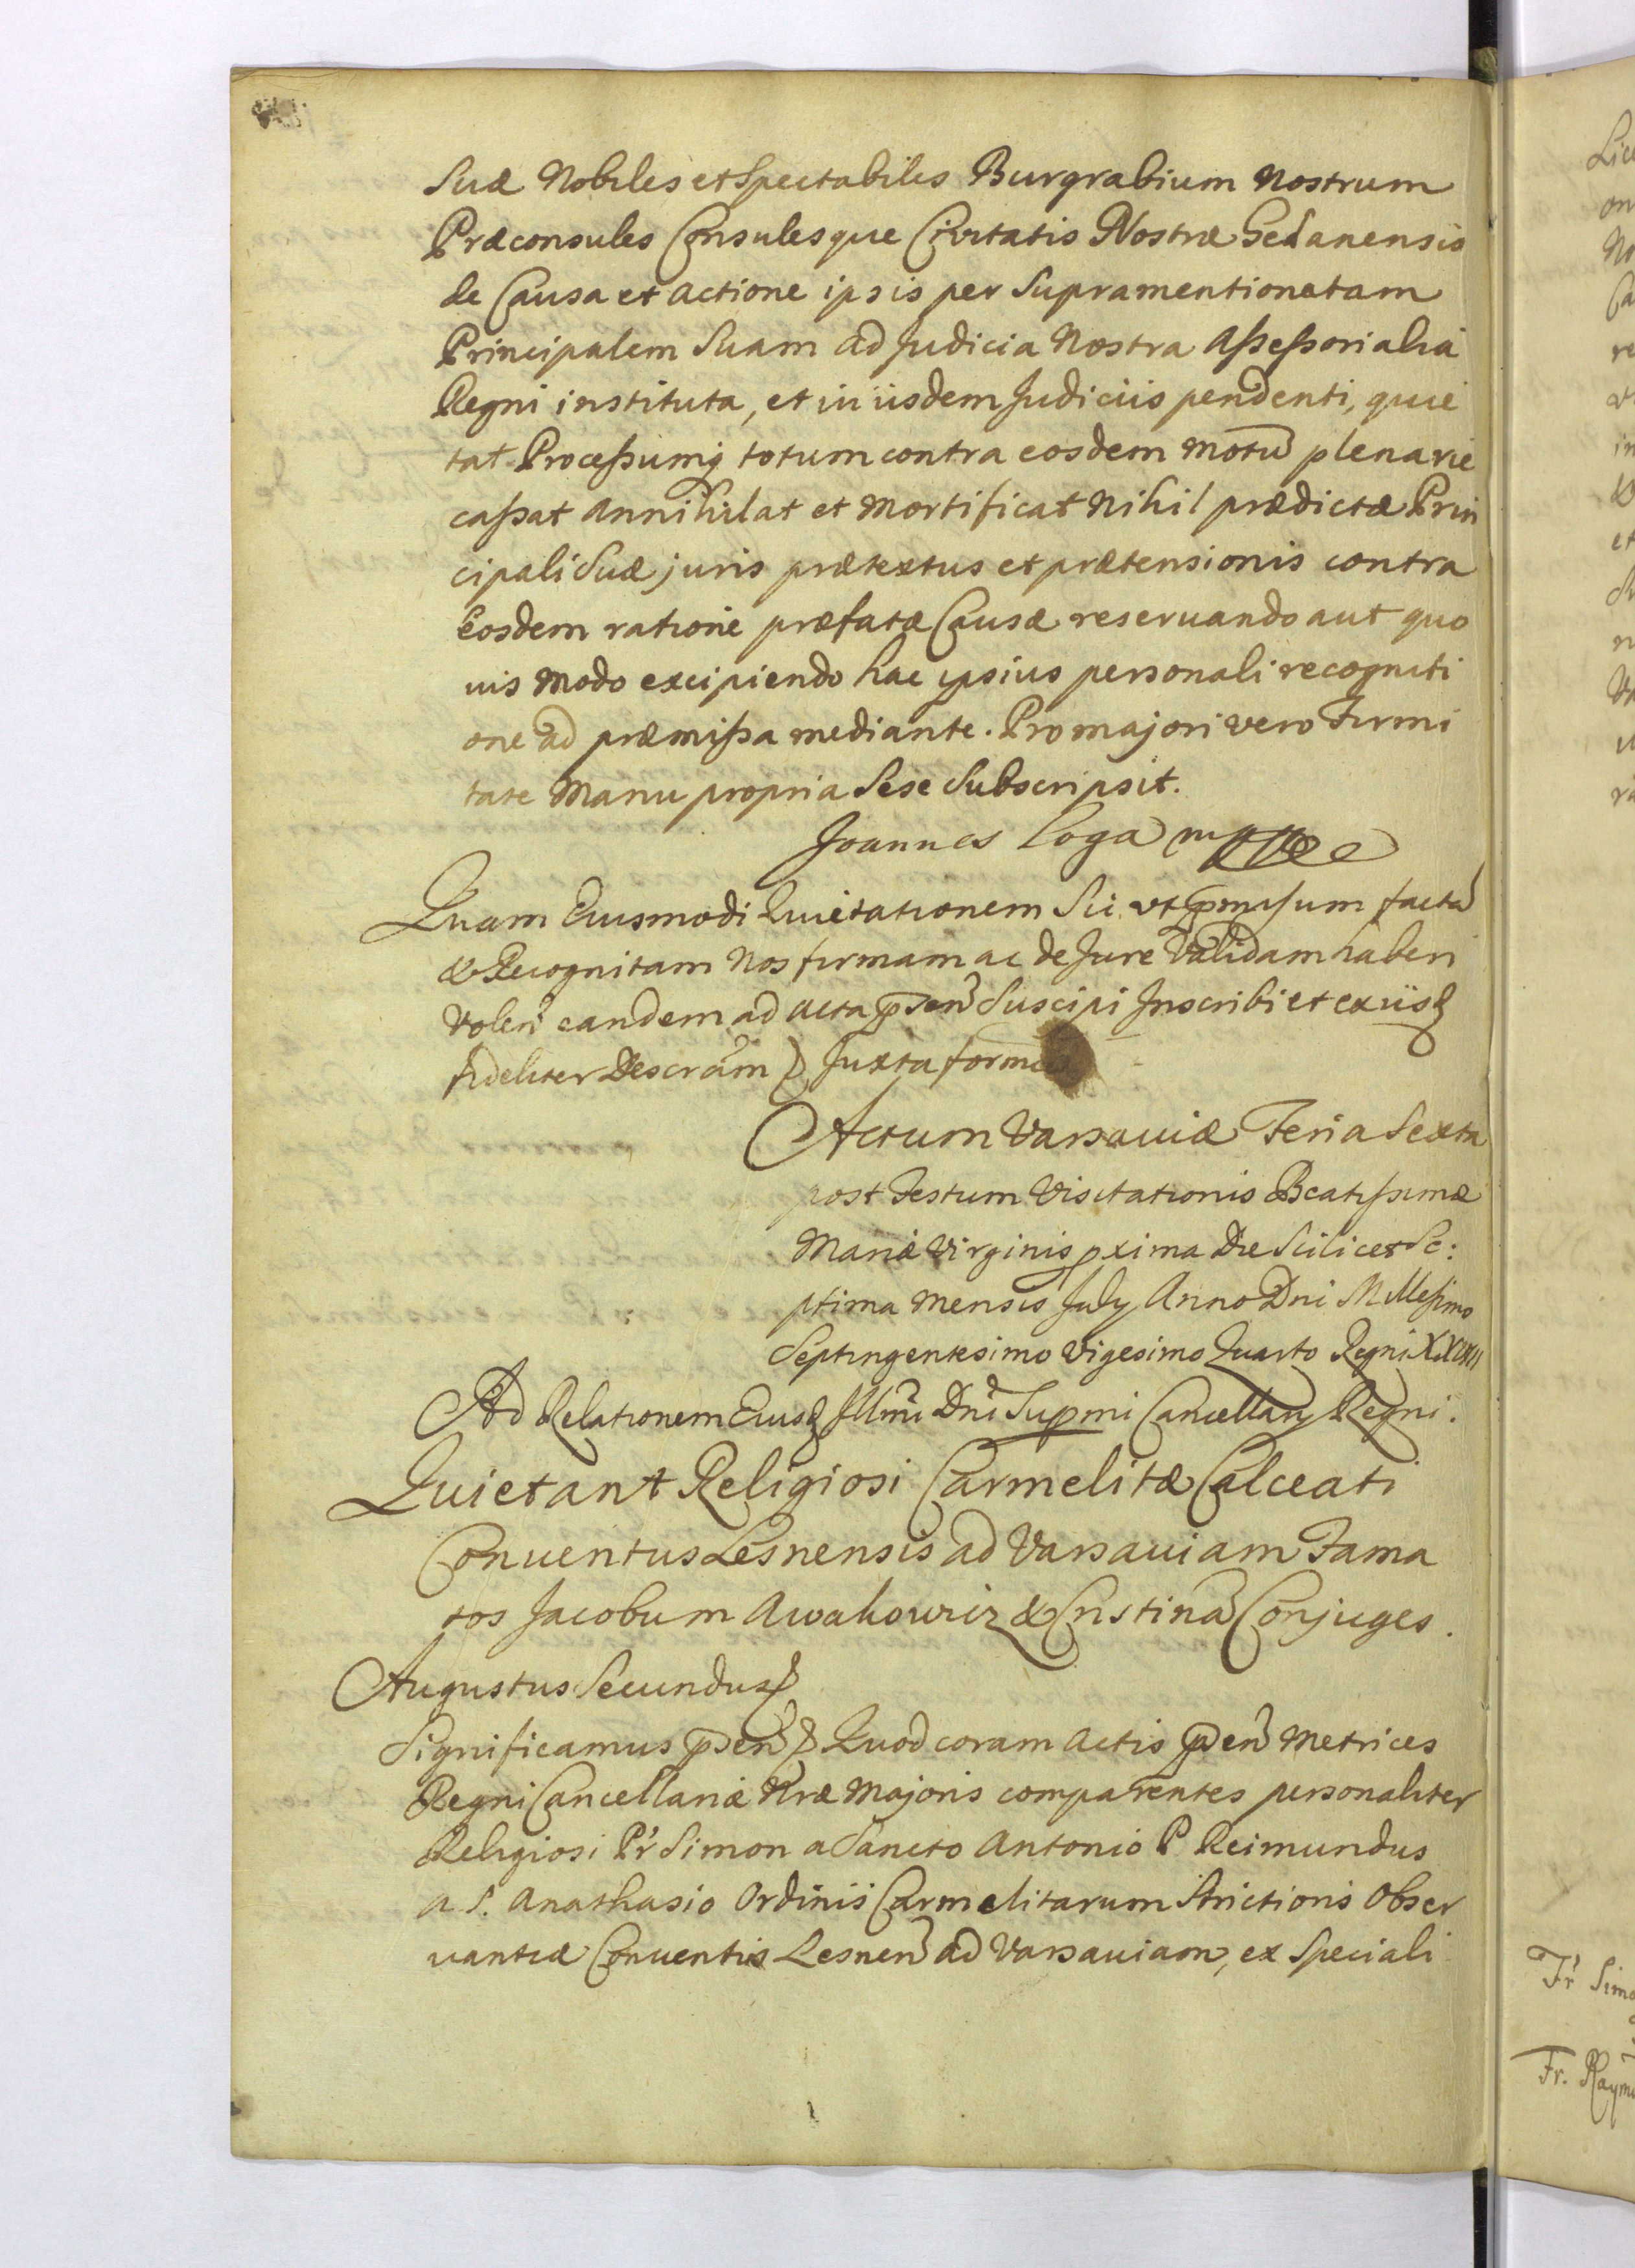 Suæ Nobiles et Spectabiles Burgrabium Nostrum
Præconsules Consulesque Civitatis Nostræ Gedanensis
de Causa et Actione ipsis per Supramentionatam
Principalem Suam ad Judicia Nostra Assessorialia
Regni instituta, et in iisdem Judiciis pendenti, quie
tat Processumq totum contra eosdem motu plenarie
cassat Annihilat et Mortificat Nihil prædictæ Prin
cipali Suæ juris prætextus et prætensionis contra
Eosdem ratione præfatæ Causæ reservando aut quo
uis Modo excipiendo hac ipsius personali recogniti
one ad præmissa mediante. Pro majori vero Firmi
tate Manu propria Sese Subscripsit.
Joannes Loga mpp
Quam Eiusmodi Quietationem Sic vt pmissum facta
& Recognitam Nos firmam ac de Jure Validam haberi
Volen eandem ad Acta psen Suscipi Inscribi et ex iisq
fideliter Describam Juxta forma
Actum Varsauiæ Feria Sexta
post Festum Visitationis Beatissimæ
Mariæ Virginis pxima Die Scilicet Se:
ptima Mensis July Anno Dni Millesimo
Septingentesimo Vigesimo Quarto Regni XXVIII
Ad Relationem Eiusq Illmi Dni Supmi Cancellary Regni.
Quietant Religiosi Carmelitæ Calceati
Conuentus Lesnensis ad Varsauiam Fama
tos Jacobum Awakowicz & Cristina Conjuges.
Augustus Secundus
Significamus psen Quod coram Actis psen Metrices
Regni Cancellariæ Nræ Majoris comparentes personaliter
Religiosi Pr Simon a Sancto Antonio P Reimundus
A S. Anathasio Ordinis Carmelitarum Strictioris Obser
uantiæ Conuentus Lesnen ad Varsauiam, ex Speciali